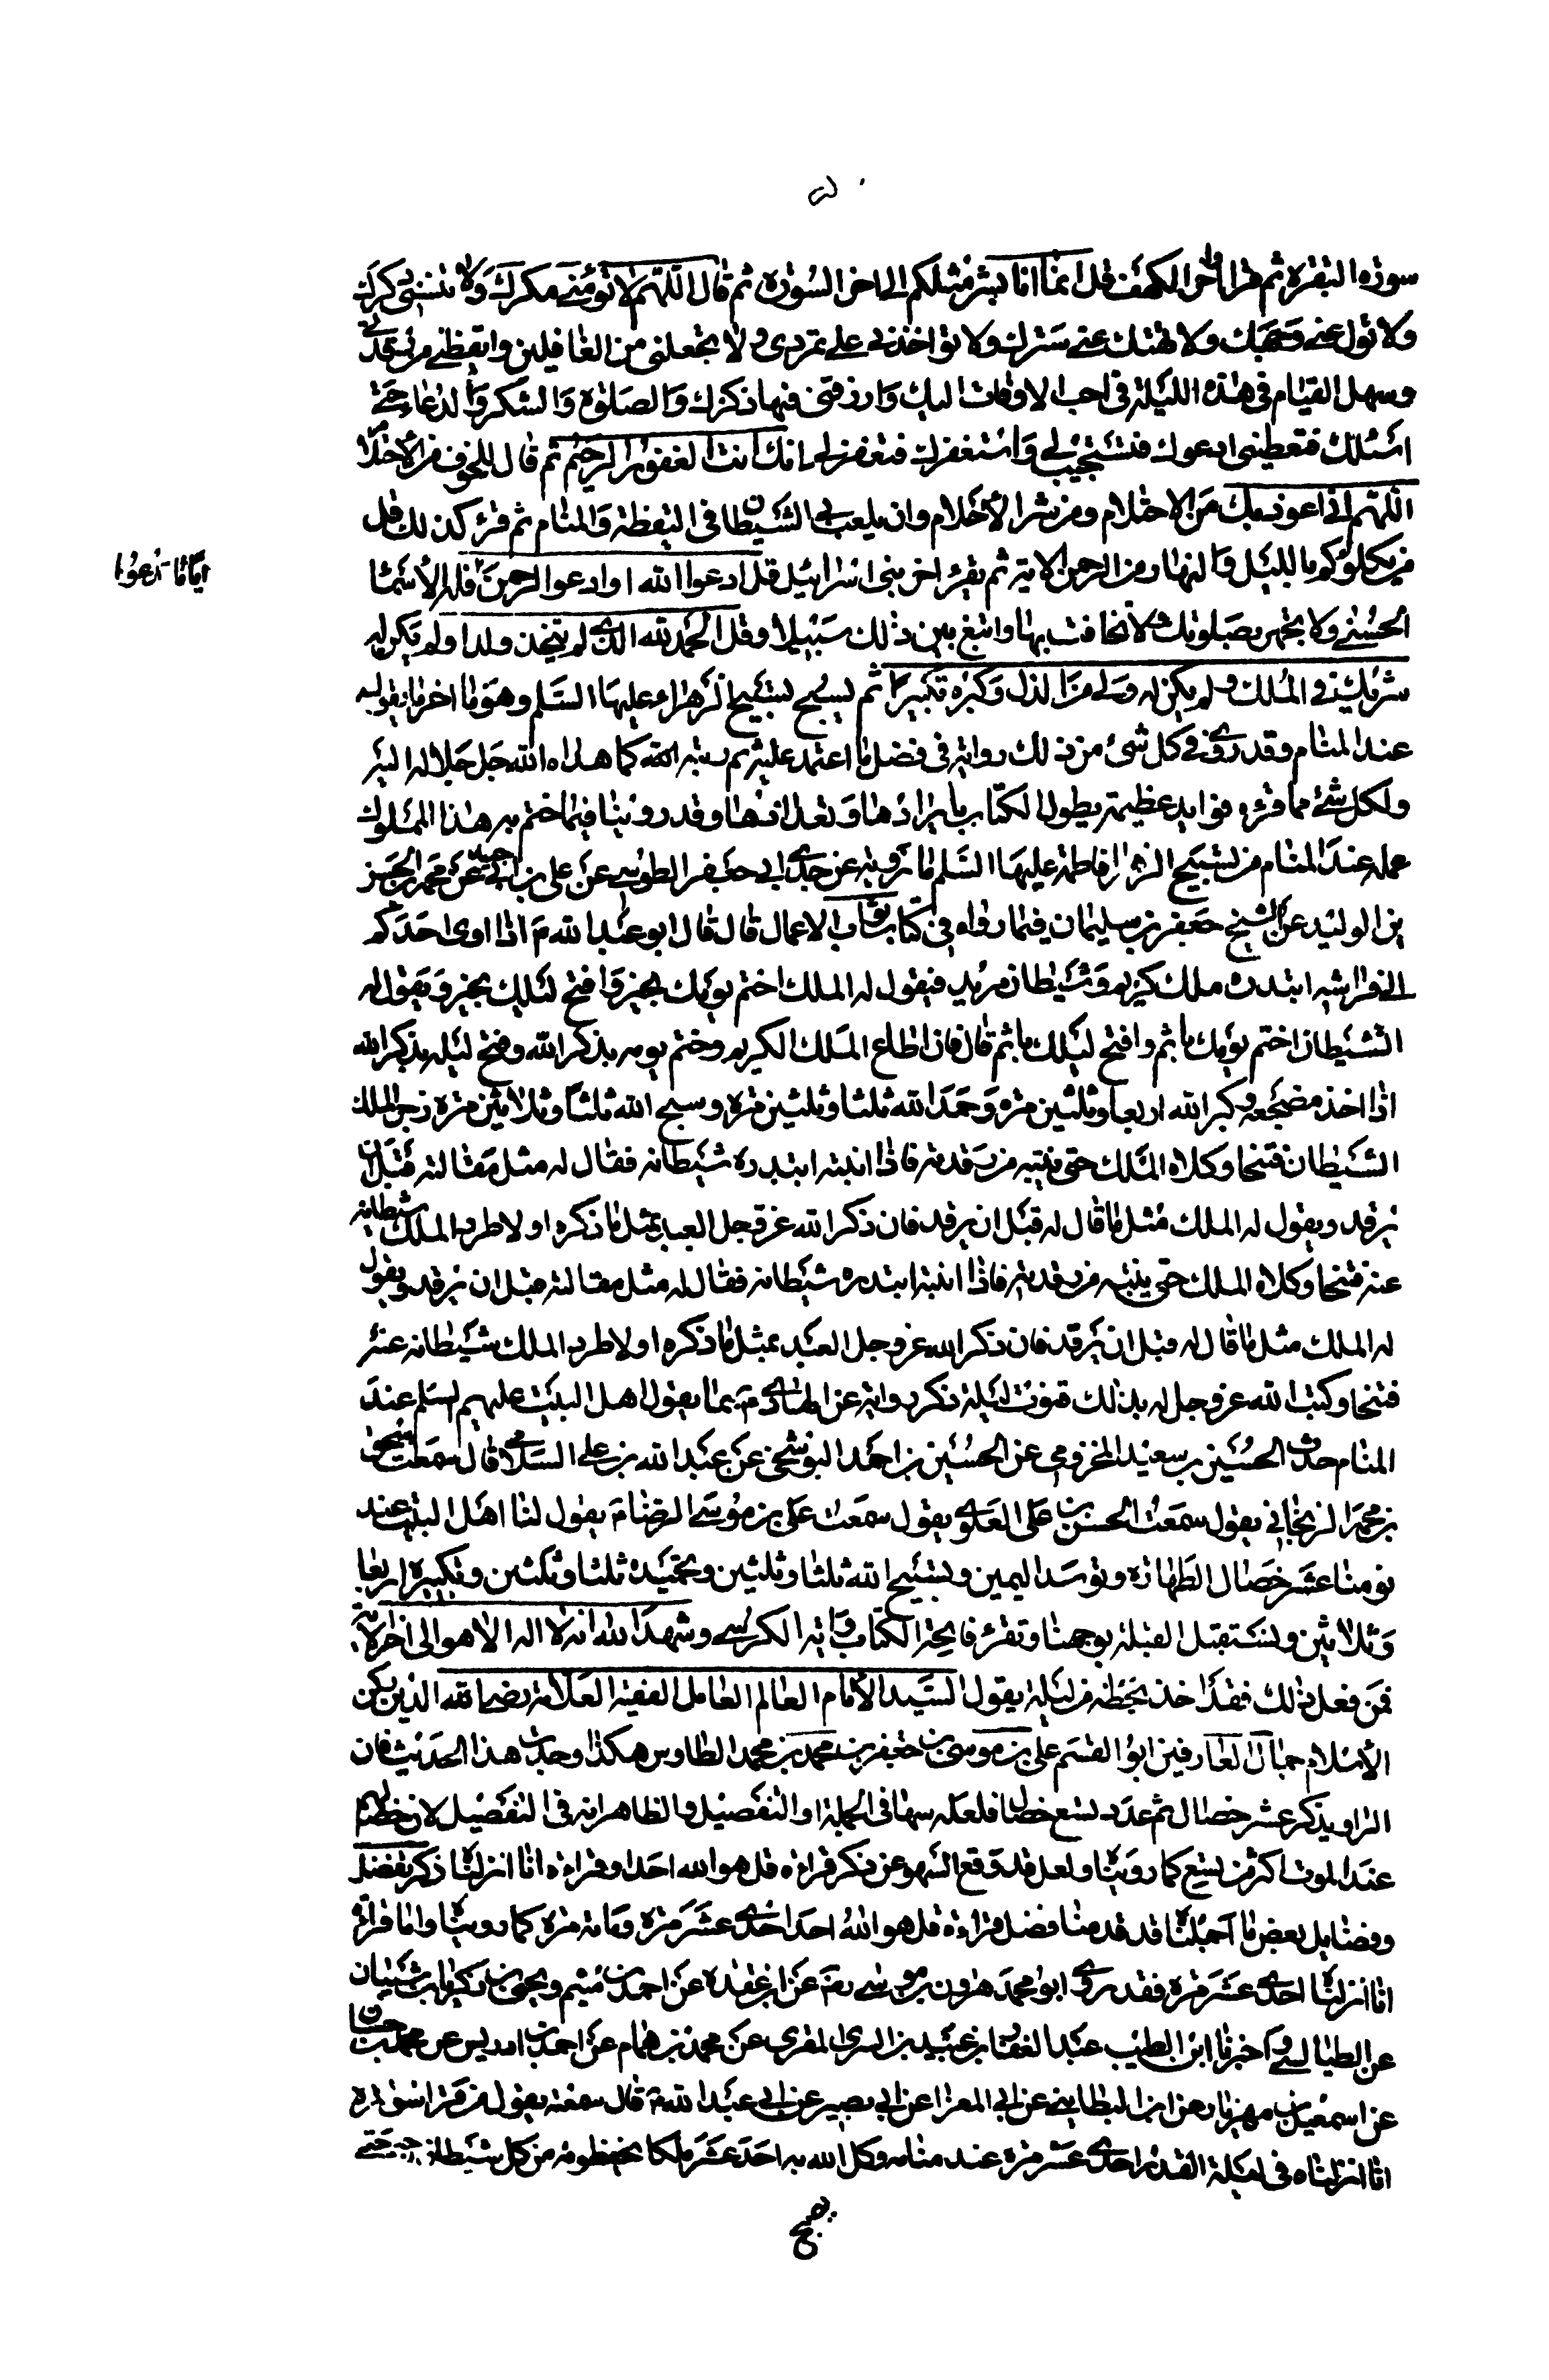 سورة البقرة ثم قرا اخر الكهف قل انما انا بشر مثلكم الى اخر السورة ثم قال اللهم لا تؤمني مكرك ولا تنسني ذكرك
ولا تول عني وجهك ولا تهتك عني سترك ولا تؤاخذني على تمردي ولا تجعلني من الغافلين وايقظني من رقدتي
وسهل القيام في هذه الليلة في احب الاوقات اليك وارزقني فيها ذكرك والصلوة والشكر والدعاء حتى
اسئلك فتعطيني ادعوك فتستجيب لي واستغفرك فتغفر لي انك انت الغفور الرحيم ثم قال للخوف من الاحتلام
اللهم اني اعوذ بك من الاحتلام ومن شر الاحلام وان يلعب بي الشيطان في اليقظة والمنام ثم قرء كذلك قل
من يكلؤكم بالليل والنهار من الرحمن الاية ثم يقرء اخر بني اسرائيل قل ادعوا الله او ادعوا الرحمن فله الاسماء
ايا ما تدعوا
الحسنى ولا تجهر بصلوتك ولا تخافت بها وابتغ بين ذلك سبيلا وقل الحمد لله الذي لم يتخذ ولدا ولم يكن له
شريك في الملك ولم يكن له ولي من الذل وكبره تكبيرا ثم يسبح تسبيح الزهراء عليها السلم وهو ما اخر ما يقوله
عند المنام وقد روي في كل شئ من ذلك رواية في فضل ما اعتمد عليه ثم كما هداه الله جل جلاله اليه
ولكل شئ مما قرء فوايد عظيمة يطول الكتاب بايرادها وتعدادها وقد روينا فيما ختم به هذا المملوك
عمله عند المنام من تسبيح الزهراء فاطمة عليها السلم ما نرويه عن جدي ابي جعفر الطوسي عن علي بن ابي جيد عن محمد بن الحسن
بن الوليد عن الشيخ جعفر بن سليمان فيما رواه في كتاب ثواب الاعمال قال قال ابو عبد الله ع اذا اوى احدكم
الى فراشه ابتدره ملك كريم وشيطان مريد فيقول له الملك اختم يومك بخير وافتح ليلك بخير ويقول له
الشيطان اختم يومك باثم وافتح ليلك باثم قال فان اطاع الملك الكريم وختم يومه بذكر الله وفتح ليله بذكر الله
اذا اخذ مضجعه وكبر الله اربعا وثلثين مرة وحمد الله ثلثا وثلثين مرة وسبح الله ثلثا وثلاثين مرة زجر الملك
الشيطان فتنحا وكلاه الملك حتى ينتبه من رقدته فاذا انتبه ابتدره شيطانه فقال له مثل مقالته قبل ان
يرقد ويقول له الملك مثل ما قال له قبل ان يرقد فان ذكر الله عز وجل العبد بمثل ما ذكره اولا طرد الملك شيطانه
عنه فتنحا وكلاه الملك حتى ينتبه من رقدته فاذا انتبه ابتدره شيطانه فقال له مثل مقالته قبل ان يرقد ويقول
له الملك مثل ما قال له قبل ان يرقد فان ذكر الله عز وجل العبد بمثل ما ذكره اولا طرد الملك شيطانه عنه
فتنحا وكتب الله عز وجل له بذلك قنوت ليلة ذكر رواية عن الهادي ع بما يقول اهل البيت عليهم السلم عند
المنام حدث الحسين بن سعيد المخزومي عن الحسين بن احمد البوشنجي عن عبد الله بن علي السلامي قال سمعت اسحق
بن محمد الزنجاني يقول سمعت الحسن بن علي العلوي يقول سمعت علي بن موسى الرضا ع يقول لنا اهل البيت عند
نومنا عشر خصال الطهارة وتوسد اليمين وتسبيح الله ثلثا وثلثين وتحميده ثلثا وثلثين وتكبيره اربعا
وثلاثين ونستقبل القبلة بوجهنا ونقرء فاتحة الكتاب واية الكرسي وشهد الله انه لا اله الا هو الى اخر الاية
فمن فعل ذلك فقد اخذ بحظه من ليلته يقول السيد الامام العالم العامل الفقيه العلامة رضي الله الدين ركن
الاسلام جمال العارفين ابو القسم علي بن موسى بن جعفر بن محمد بن محمد الطاوس هكذا وجدت هذا الحديث فان
الراوي ذكر عشر خصال ثم عدد تسع خصال فلعله سها في الجملة او التفصيل والظاهر انه في التفصيل لان خصالهم
عند النوم اكثر من تسع كما رويناه ولعل قد وقع السهو عن ذكر قراءة قل هو الله احد او قراءة انا انزلناه ذكر تفضيل
وفضايل بعض ما اجملناه قد قدمنا فضل قراءة قل هو الله احد احدى عشر مرة ومائة مرة كما رويناه واما قراءة
انا انزلناه احدى عشر مرة فقد روي ابو محمد هرون بن موسى رضه عن ابن عقدة عن احمد بن ميثم ويحيى بن زكريا بن شيبان
عن الطيالسي واخبرنا ابن الطيب عبد الغفار بن عبيد بن السري المقري عن محمد بن همام عن احمد بن ادريس عن محمد بن حسان
عن اسمعيل بن مهران عن ابن البطايني عن ابي المعزا عن ابي بصير عن ابي عبد الله ع قال سمعته يقول من قرا سورة
انا انزلناه في ليلة القدر احدى عشر مرة عند منامه وكل الله به احد عشر ملكا يحفظونه من كل شيطان رجيم حتى
يصبح